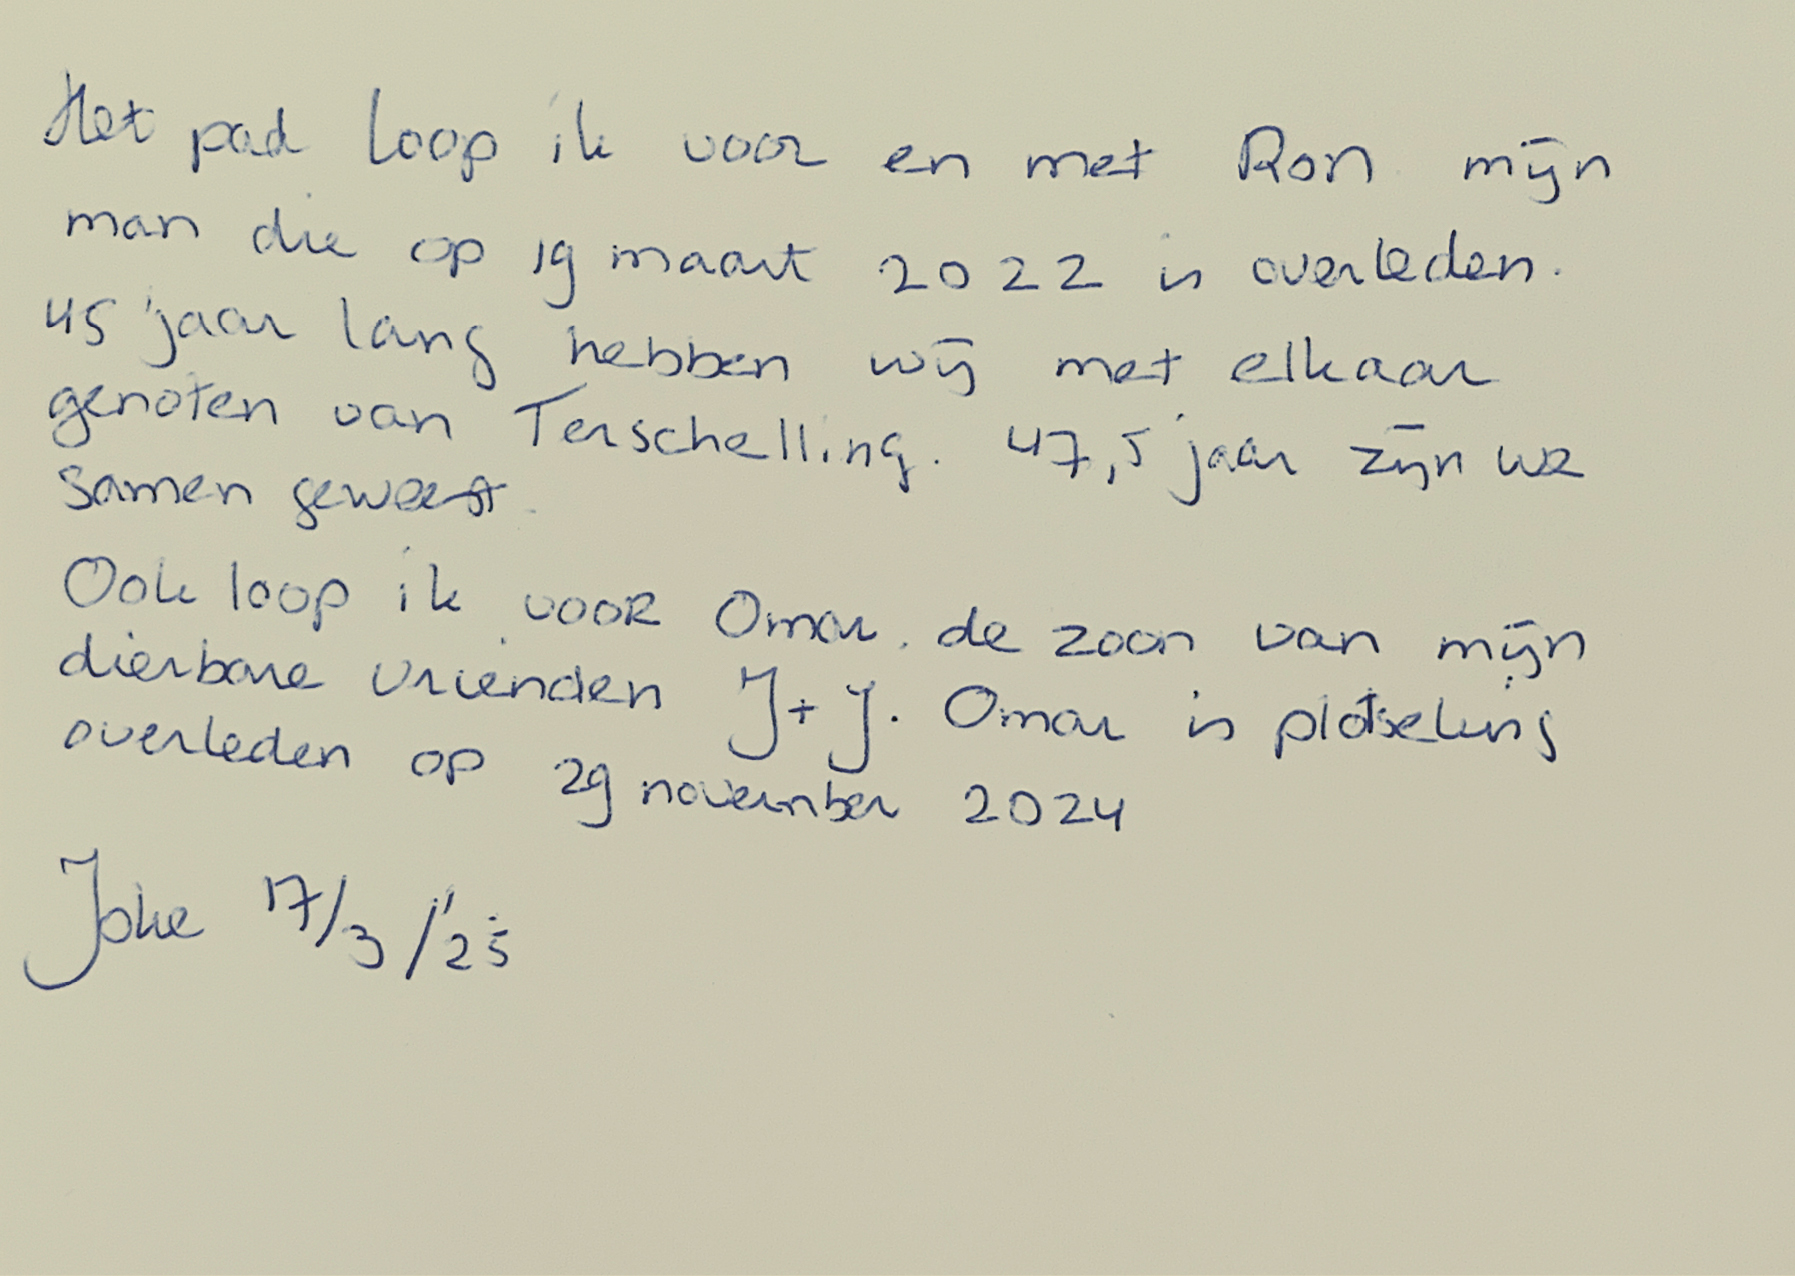 Het pad loop ik voor en met Ron mijn
man die op 19 maart 2022 is overleden.
45 jaar lang hebben wij met elkaar
genoten van Terschelling. 47,5 jaar zijn we
samen geweest.
Ook loop ik voor Omar, de zoon van mijn
dierbare vrienden J + J. Omar is plotseling
overleden op 29 november 2024
Joke 17/3/'25